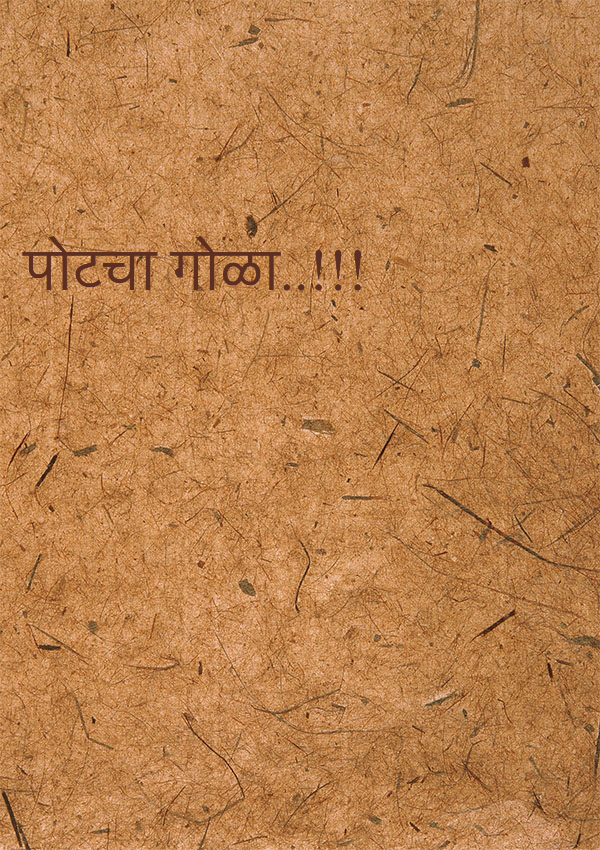 पोटचा गोळा..!!!